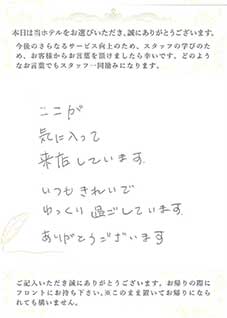 本日は当ホテルをお選びいただき、誠にありがとうございます。
今後のさらなるサービス向上のため、スタッフの学びのた
め、お客様からお言葉を頂けましたら幸いです。どのよう
なお言葉でもスタッフ一同励みになります。
ここが
気に入って
来店しています。
いつもきれいで
ゆっくり過ごしています。
ありがとうございます
ご記入いただき誠にありがとうございます。お帰りの際に
フロントにお持ち下さい。※このまま置いてお帰りになら
れても構いません。